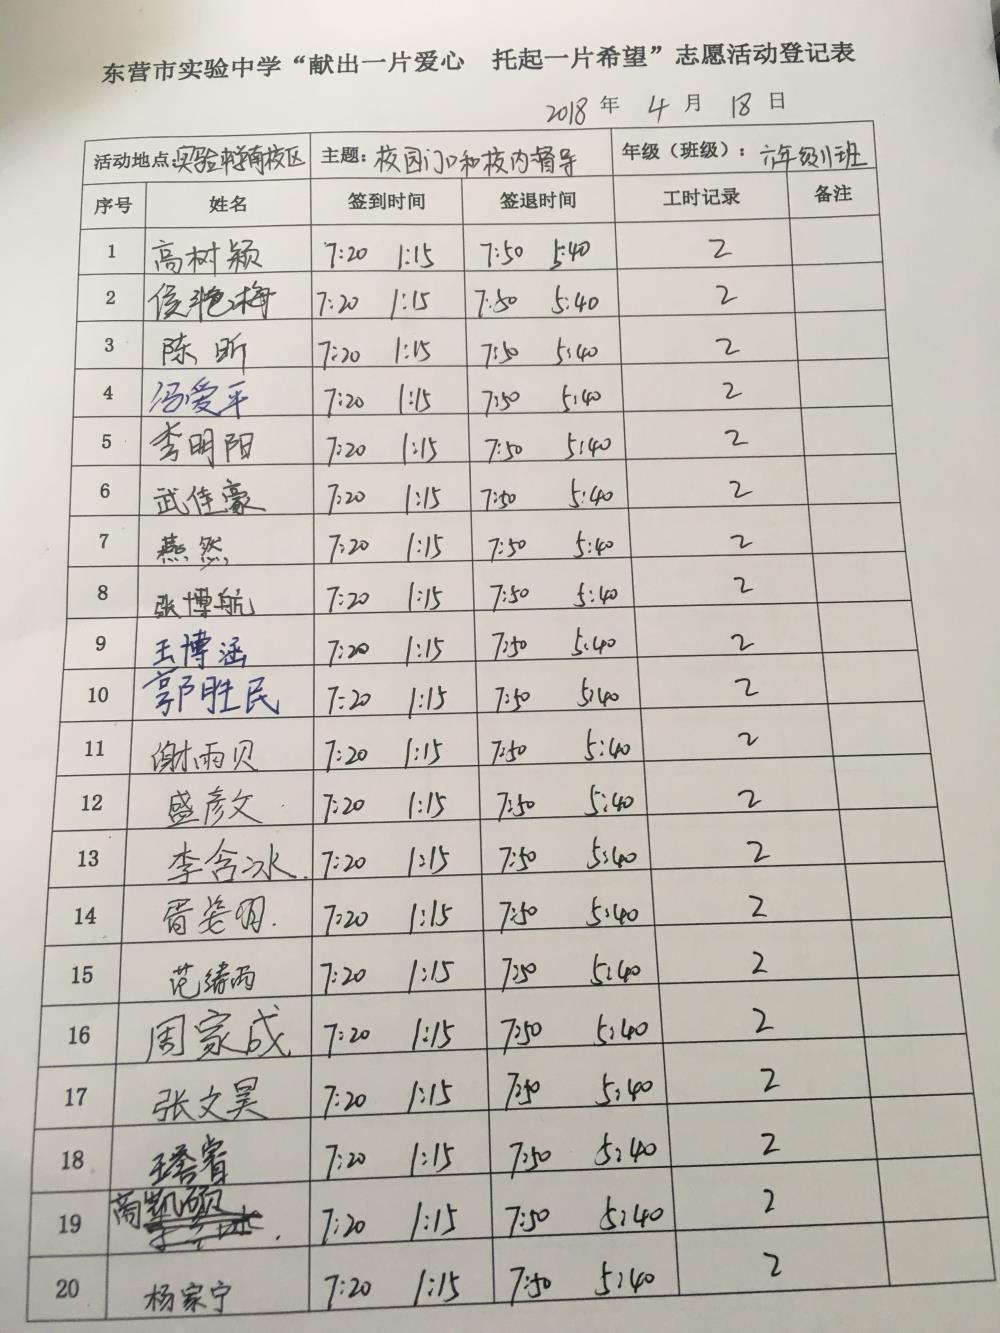 东营市实验中学“献出一片爱心 托起一片希望”志愿活动登记表
2018年 4月 18日
活动地点:实验中学南校区 主题：校园门口和校内督导 年级（班级）：六年级11班
序号 姓名 签到时间 签退时间 工时记录 备注
1 高树颖 7:20 1:15 7:50 5:40 2
2 侯艳梅 7:20 1:15 7:50 5:40 2
3 陈昕 7:20 1:15 7:50 5:40 2
4 冯爱平 7:20 1:15 7:50 5:40 2
5 李明阳 7:20 1:15 7:50 5:40 2
6 武佳豪 7:20 1:15 7:50 5:40 2
7 燕然 7:20 1:15 7:50 5:40 2
8 张博航 7:20 1:15 7:50 5:40 2
9 王博涵 7:20 1:15 7:50 5:40 2
10 郭胜民 7:20 1:15 7:50 5:40 2
11 谢雨贝 7:20 1:15 7:50 5:40 2
12 盛彦文 7:20 1:15 7:50 5:40 2
13 李含冰. 7:20 1:15 7:50 5:40 2
14 7:20 1:15 7:50 5:40 2
15 7:20 1:15 7:50 5:40 2
16 周家成 7:20 1:15 7:50 5:40 2
17 张文昊 7:20 1:15 7:50 5:40 2
18 7:20 1:15 7:50 5:40 2
19 商凯硕 7:20 1:15 7:50 5:40 2
20 杨家宁 7:20 1:15 7:50 5:40 2